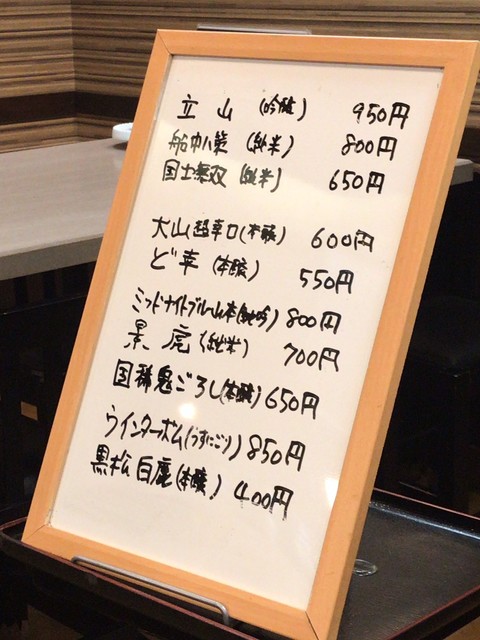 立山 (吟醸) 950円
船中八策 (純米) 800円
国士無双 (純米) 650円
大山超辛口(本醸) 600円
ど辛 (本醸) 550円
ミッドナイトブルー山本(純吟) 800円
景虎 (純米) 700円
国稀鬼ごろし(本醸) 650円
ウインターボム(うすにごり) 850円
黒松白鹿(本醸) 400円